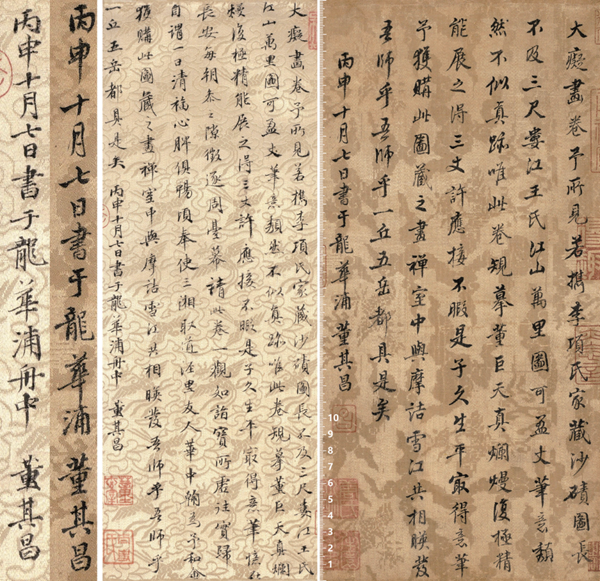 大癡畫卷予所見若檇李項氏家藏沙磧圖長
不及三尺婁江王氏江山萬里圖可盈丈筆意頹
然不似真跡唯此卷規摹董巨天真爛熳復極精
能展之得三丈許應接不暇是子久生平冣得意筆
予獲購此圖藏之畫禪室中與摩詰雪江共相映發
吾師乎吾師乎一丘五岳都具是矣
丙申十月七日書于龍華浦董其昌
10
9
8
7
6
5
4
3
2
1
大癡畫卷予所見若檇李項氏家藏沙磧圖長不及三尺婁江王氏
江山萬里圖可盈丈筆意頹然不似真跡唯此卷規摹董巨天真爛
熳復極精能展之得三丈許應接不暇是子久生平冣得意筆憶在
長安每朝參之隙徵逐周臺幕請此卷一觀如詣寶所虛往實歸
自謂一日清福心脾俱暢頃奉使三湘取道涇里友人華中翰為予和會
獲購此圖藏之畫禪室中與摩詰雪江共相映發吾師乎吾師乎
一丘五岳都具是矣 丙申十月七日書于龍華浦舟中 董其昌
丙申十月七日書于龍華浦董其昌
丙申十月七日書于龍華浦舟中 董其昌